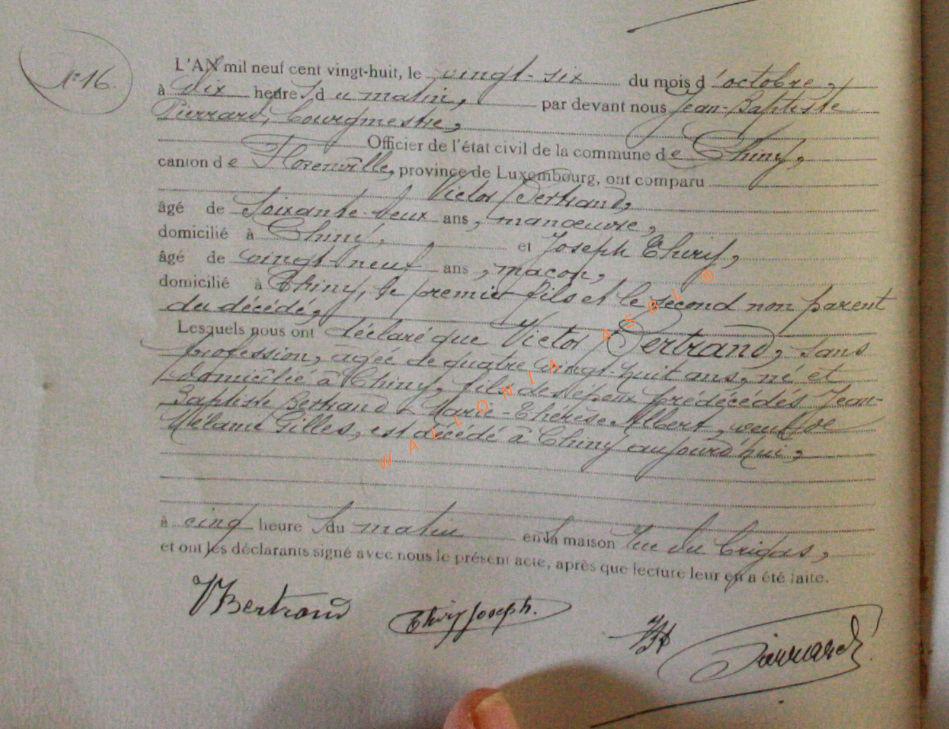 N° 16.
L'AN mil neuf cent vingt-huit, le vingt-six du mois d'octobre,
à dix heures du matin, par devant nous Jean-Baptiste
Pierrard, bourgmestre,
Officier de l'état civil de la commune de Chiny,
canton de Florenville, province de Luxembourg, ont comparu
Victor Bertrand,
âgé de soixante-deux ans, manœuvre,
domicilié à Chiny, et Joseph Thiry,
âgé de vingt-neuf ans, maçon,
domicilié à Chiny, le premier fils et le second non parent
du décédé,
Lesquels nous ont déclaré que Victor Bertrand, sans
profession, agée de quatre-vingt-huit ans, né et
domicilié à Chiny, fils des époux prédécédés Jean-
Baptiste Bertrand & Marie-Thérèse Albert, veuf de
Mélanie Gilles, est décédé à Chiny aujourd'hui,
à cinq heures du matin en sa maison rue du
et ont les déclarants signé avec nous le présent acte, après que lecture leur en a été faite.
VBertrand
Thiry Joseph.
JB Pierrard
WALLONIA ASBL ©